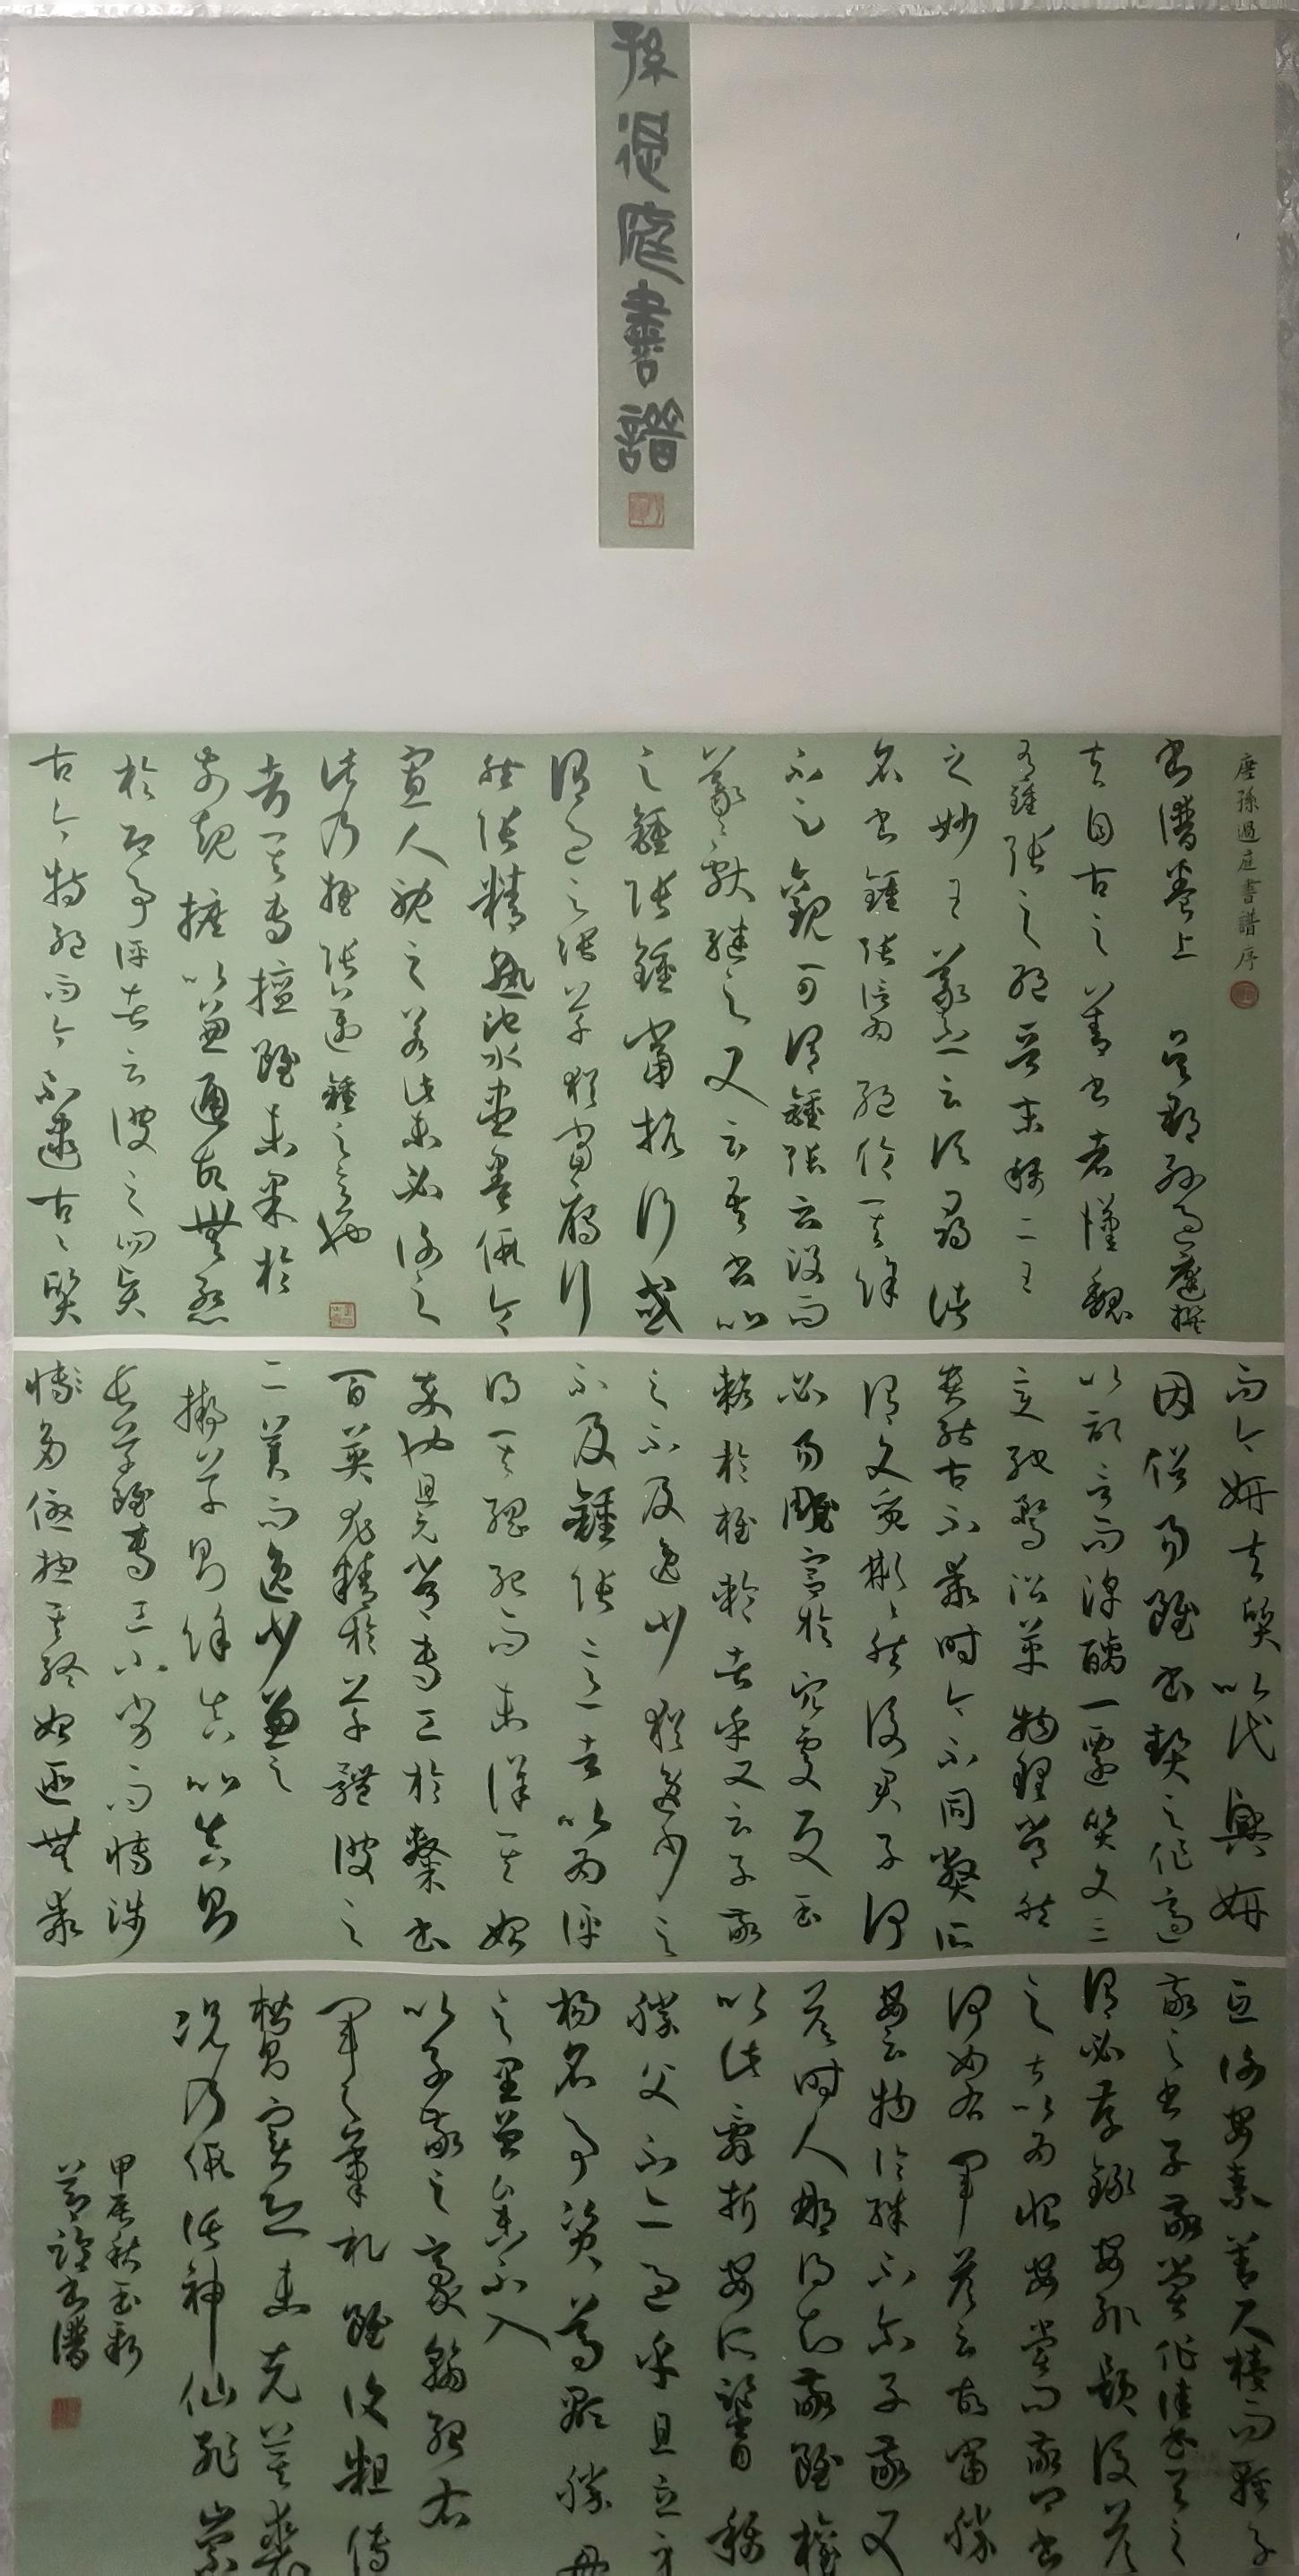 孫過庭書譜
唐孫過庭書譜序
書譜卷上 吳郡孫過庭撰
夫自古之善書者漢魏
有鍾張之絕晉末稱二王
之妙王羲之云頃尋諸
名書鍾張信為絕倫其餘
不足觀可謂鍾張云沒而
羲獻繼之又云吾書比
之鍾張鍾當抗行或
謂過之張草猶當雁行
然張精熟池水盡墨假令
寡人耽之若此未必謝之
此乃推張邁鍾之意也
考其專擅雖未果於
前規摭以兼通故無慚
於即事評者云彼之四賢
古今特絕而今不逮古古質
而今妍夫質以代興妍
因俗易雖書契之作適
以記言而淳醨一遷質文三
變馳騖沿革物理常然
貴能古不乖時今不同弊所
謂文質彬彬然後君子何
必易雕宮於穴處反玉
輅於椎輪者乎又云子敬
之不及逸少猶逸少之
不及鍾張意者以為評
得其綱紀而未詳其始
卒也且元常專工於隸書
百英尤精於草體彼之
二美而逸少兼之
擬草則餘真比真則
長草雖專工小劣而博涉
多優總其終始匪無乖
互謝安素善尺牘而輕子
敬之書子敬嘗作佳書與之
謂必存錄安輒題後答
之甚以為恨安嘗問敬卿書
何如右軍答云故當勝
安云物論殊不爾子敬又
答時人那得知敬雖權
以此辭折安所鑒自稱
勝父不亦過乎且立身
揚名事資尊顯勝母
之里曾參不入
以子敬之豪翰紹右
軍之筆札雖復粗傳
楷則實恐未克箕裘
況乃假託神仙恥崇
甲辰秋至新
節臨書譜